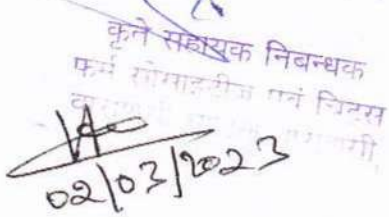 कृते सहायक निबन्धक
फर्म सोसाइटीज एवं चिट्स
वाराणसी
02/03/2023